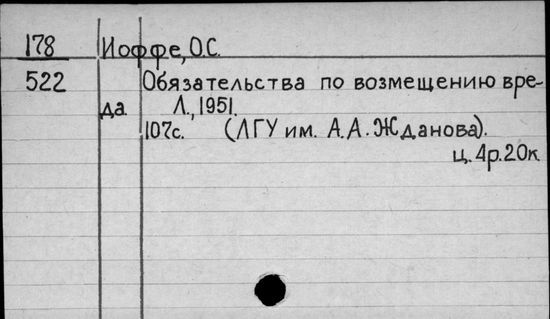 178 Иоффе, О.С.
522 Обязательства по возмещению вре-
да. Л., 1951.
107с. (ЛГУ им. А.А. Жданова).
ц. 4р. 20к